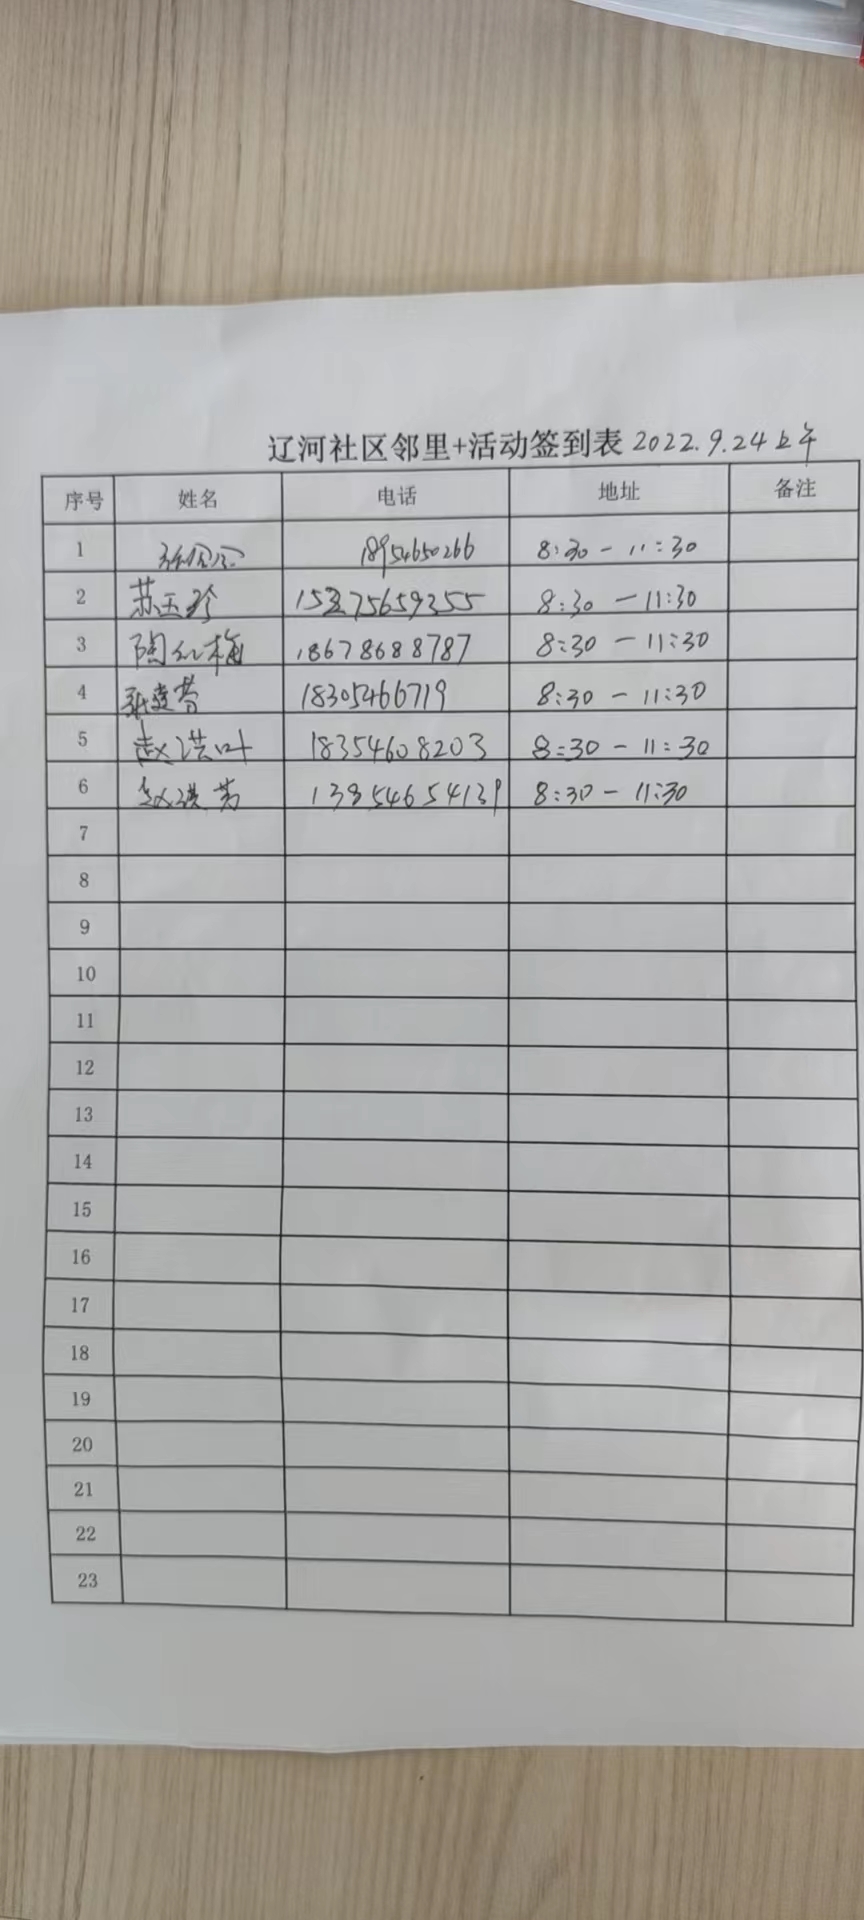 辽河社区邻里+活动签到表 2022.9.24上午
序号 姓名 电话 地址 备注
1 18954650266 8:30-11:30
2 苏玉珍 15275659355 8:30-11:30
3 陶红梅 18678688787 8:30-11:30
4 18305466719 8:30-11:30
5 赵洪叶 18354608203 8:30-11:30
6 赵洪芳 13354654139 8:30-11:30
7
8
9
10
11
12
13
14
15
16
17
18
19
20
21
22
23